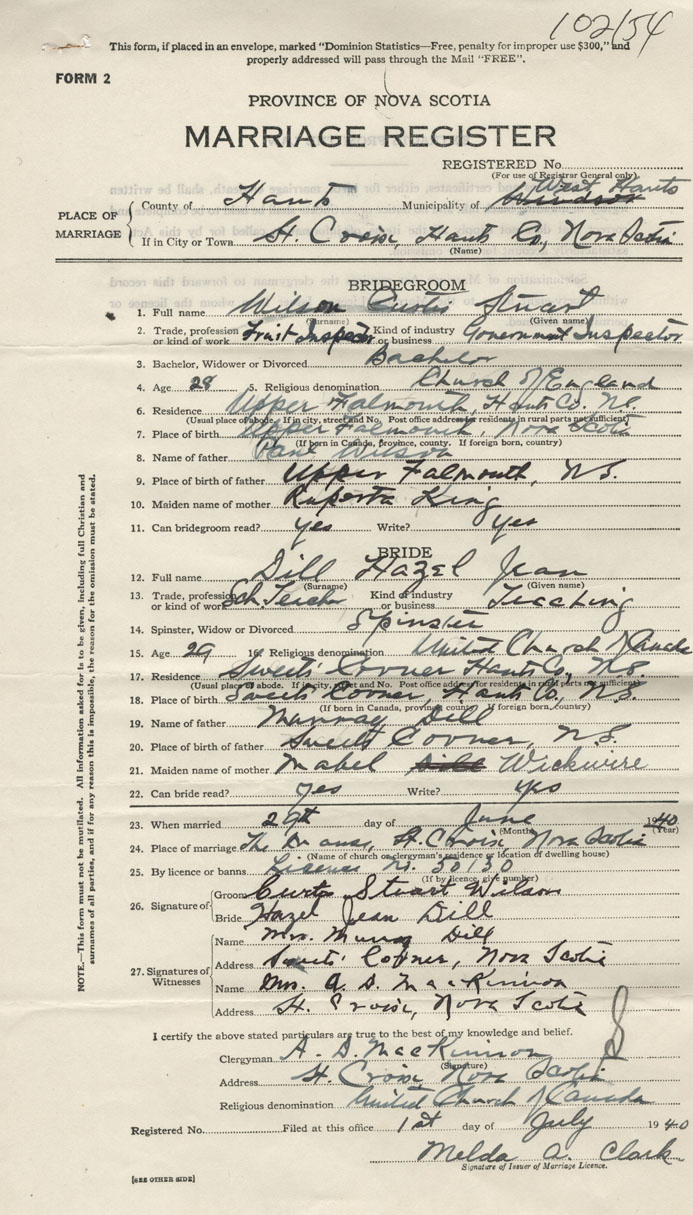 102/54
This form, if placed in an envelope, marked "Dominion Statistics—Free, penalty for improper use $300," and
properly addressed will pass through the Mail "FREE".
FORM 2
PROVINCE OF NOVA SCOTIA
MARRIAGE REGISTER
REGISTERED No.
(For use of Registrar General only)
PLACE OF MARRIAGE
County of Hants Municipality of West Hants
If in City or Town St. Croix Hants Co., Nova Scotia
(Name)
BRIDEGROOM
1. Full name Wilson Curtis Stuart
(Surname) (Given name)
2. Trade, profession or kind of work Fruit Inspector Kind of industry or business Government Inspector
3. Bachelor, Widower or Divorced Bachelor
4. Age 28 5. Religious denomination Church of England
6. Residence Upper Falmouth, Hants Co. N.S.
(Usual place of abode. If in city, street and No. Post office address for residents in rural parts not sufficient)
7. Place of birth Upper Falmouth, Nova Scotia
(If born in Canada, province, county. If foreign born, country)
8. Name of father Paul Wilson
9. Place of birth of father Upper Falmouth, N.S.
10. Maiden name of mother Ruperta King
11. Can bridegroom read? yes Write? yes
BRIDE
12. Full name Dill Hazel Jean
(Surname) (Given name)
13. Trade, profession or kind of work Sch. Teacher Kind of industry or business Teaching
14. Spinster, Widow or Divorced Spinster
15. Age 29 16. Religious denomination United Church of Canada
17. Residence Sweets' Corner Hants Co., N.S.
(Usual place of abode. If in city, street and No. Post office address for residents in rural parts not sufficient)
18. Place of birth Sweets' Corner, Hants Co., N.S.
(If born in Canada, province, county. If foreign born, country)
19. Name of father Murray Dill
20. Place of birth of father Sweets Corner, N.S.
21. Maiden name of mother Mabel Dill Wickwire
22. Can bride read? yes Write? yes
23. When married 29th day of June 1940
(Month) (Year)
24. Place of marriage The Manse, St. Croix, Nova Scotia
(Name of church or clergyman's residence or location of dwelling house)
25. By licence or banns License No. 30130
(If by licence, give number)
26. Signature of
Groom Curtis Stuart Wilson
Bride Hazel Jean Dill
27. Signatures of Witnesses
Name Mrs. Murray Dill
Address Sweets' Corner, Nova Scotia
Name Mrs. A. D. MacKinnon
Address St. Croix, Nova Scotia
I certify the above stated particulars are true to the best of my knowledge and belief.
Clergyman A. D. MacKinnon
(Signature)
Address St. Croix Nova Scotia
Religious denomination United Church of Canada
Registered No. Filed at this office 1st day of July 1940
Melda A. Clark
Signature of Issuer of Marriage Licence.
[SEE OTHER SIDE]
NOTE.—This form must not be mutilated. All information asked for is to be given, including full Christian and
surnames of all parties, and if for any reason this is impossible, the reason for the omission must be stated.